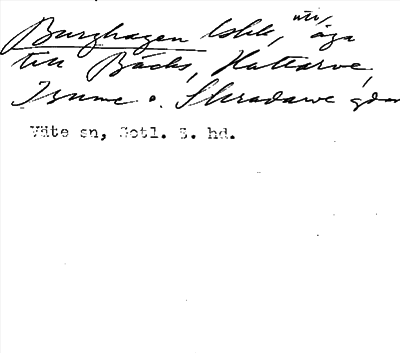 Burghagen lskk, utr, äga
till Bäcks, Hattarve,
Isume o. Skradarve gdar
Väte sn, Gotl. S. hd.